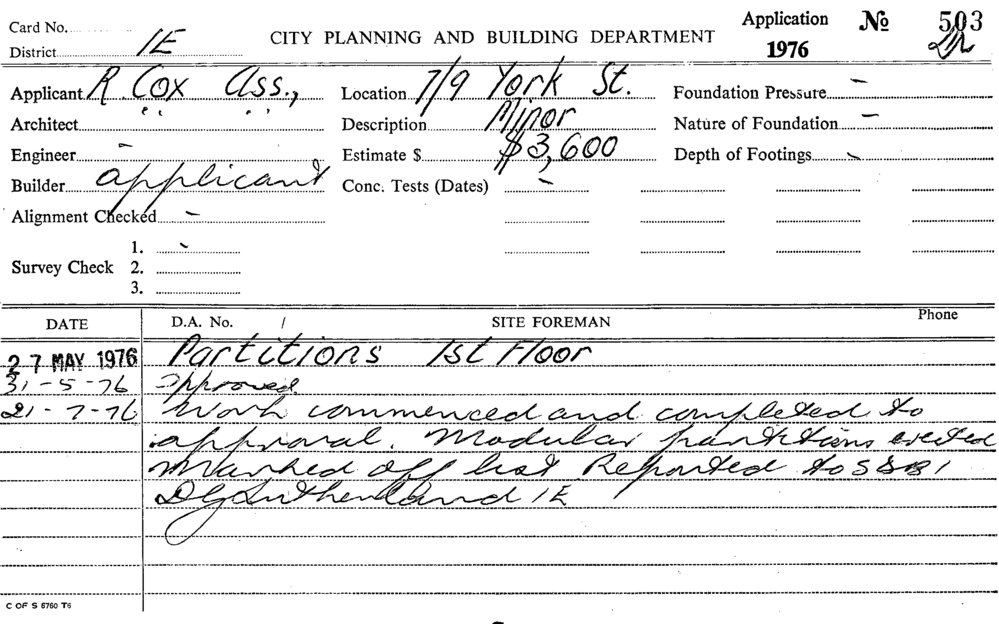 Card No.
District 1E
CITY PLANNING AND BUILDING DEPARTMENT
Application No 503
1976
Applicant R. Cox Ass.,
Location 7/9 York St.
Foundation Pressure –
Architect " "
Description Minor
Nature of Foundation –
Engineer –
Estimate $ $3,600
Depth of Footings –
Builder applicant
Conc. Tests (Dates) –
Alignment Checked –
Survey Check 1. –
2.
3.
DATE D.A. No. / SITE FOREMAN Phone
27 MAY 1976 Partitions 1st Floor
31-5-76 approved.
21-7-76 Work commenced and completed to
approval. Modular partitions erected
Marked off list Reported to
DG Sutherland 1E
C OF S 5760 T6